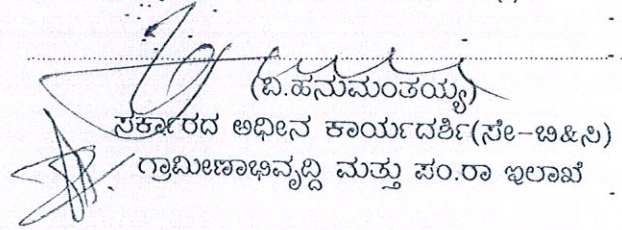 (ಬಿ.ಹನುಮಂತಯ್ಯ)
ಸರ್ಕಾರದ ಅಧೀನ ಕಾರ್ಯದರ್ಶಿ(ಸೇ-ಬಿ&ಸಿ)
ಗ್ರಾಮೀಣಾಭಿವೃದ್ಧಿ ಮತ್ತು ಪಂ.ರಾ ಇಲಾಖೆ